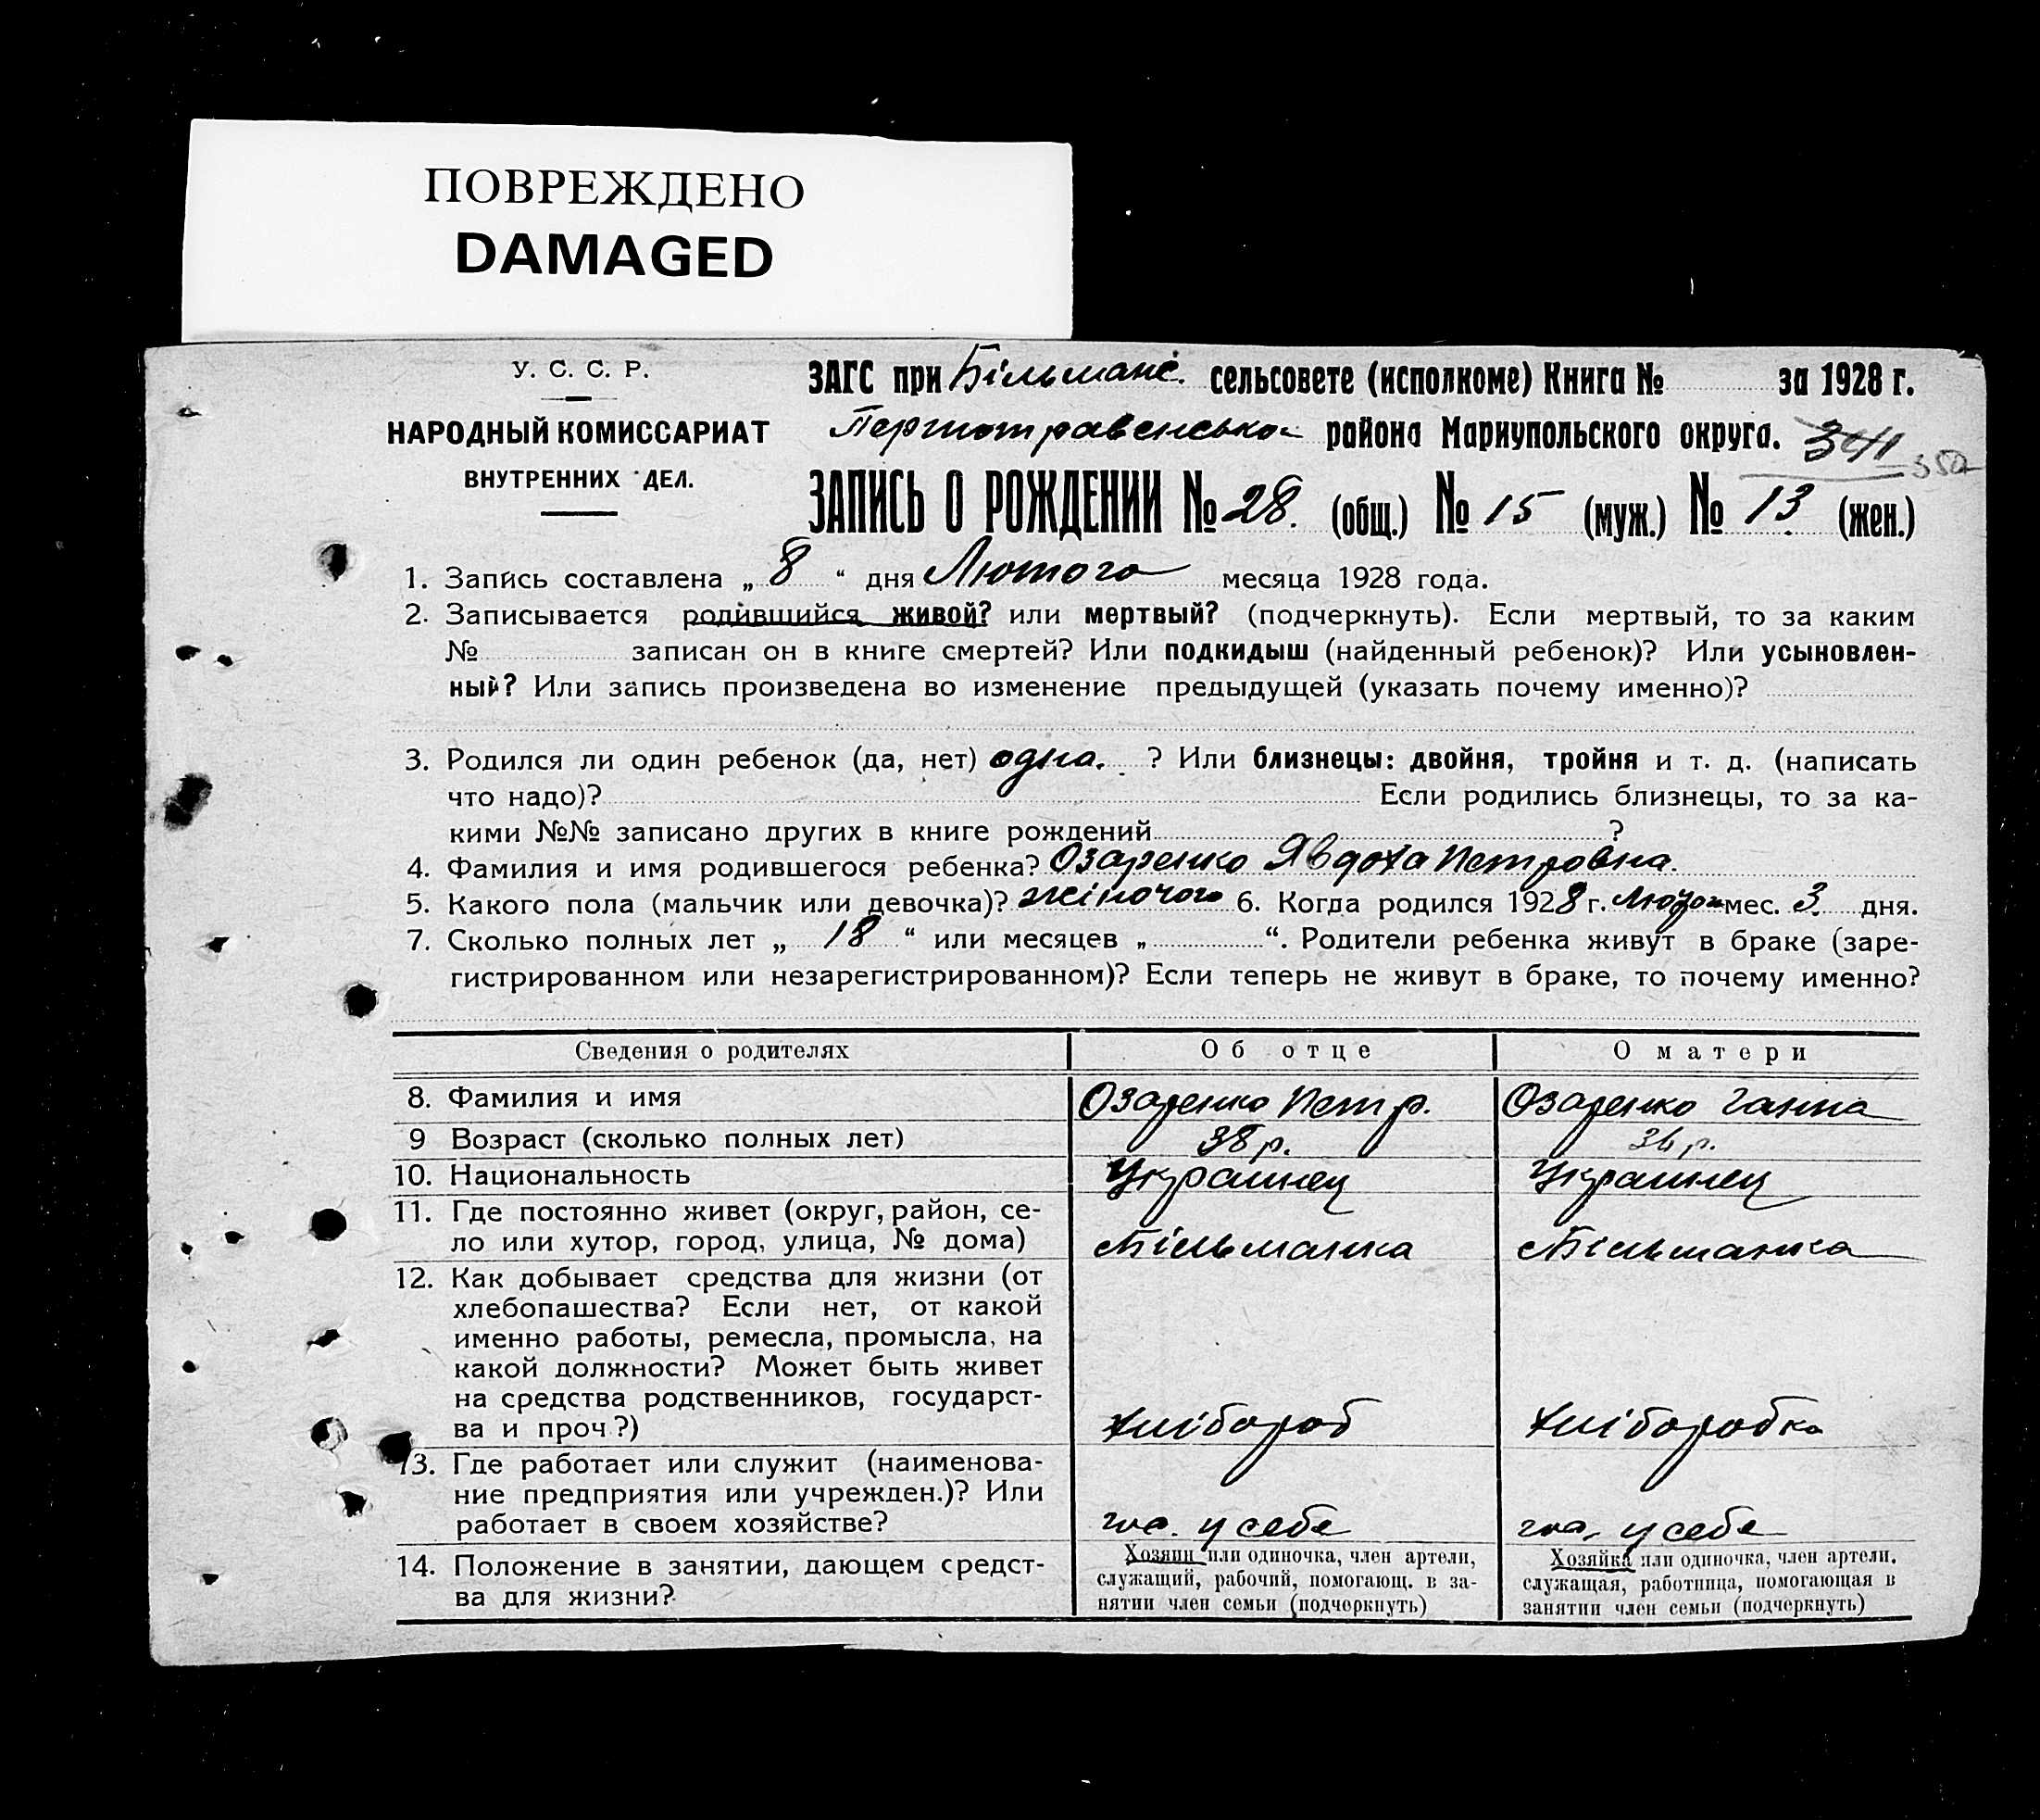 ПОВРЕЖДЕНО
DAMAGED
У. С. С. Р.
НАРОДНЫЙ КОМИССАРИАТ
ВНУТРЕННИХ ДЕЛ.
ЗАГС при Більманс. сельсовете (исполкоме) Книга № за 1928 г.
Першотравенсько района Мариупольского округа. 341
352
ЗАПИСЬ О РОЖДЕНИИ № 28. (общ.) № 15 (муж.) № 13 (жен.)
1. Запись составлена „ 8 “ дня Лютого месяца 1928 года.
2. Записывается родившийся живой? или мертвый? (подчеркнуть). Если мертвый, то за каким
№ записан он в книге смертей? Или подкидыш (найденный ребенок)? Или усыновлен-
ный? Или запись произведена во изменение предыдущей (указать почему именно)?
3. Родился ли один ребенок (да, нет) одна. ? Или близнецы: двойня, тройня и т. д. (написать
что надо)? Если родились близнецы, то за ка-
кими №№ записано других в книге рождений ?
4. Фамилия и имя родившегося ребенка? Озаренко Явдоха Петровна.
5. Какого пола (мальчик или девочка)? жіночого 6. Когда родился 1928 г. Лютого мес. 3. дня.
7. Сколько полных лет „ 18 “ или месяцев „ “. Родители ребенка живут в браке (заре-
гистрированном или незарегистрированном)? Если теперь не живут в браке, то почему именно?
Сведения о родителях Об отце О матери
8. Фамилия и имя Озаренко Петр. Озаренко Ганна
9 Возраст (сколько полных лет) 38 р. 36 р.
10. Национальность Украинец Украинец
11. Где постоянно живет (округ, район, се-
ло или хутор, город, улица, № дома) Більманка Більманка
12. Как добывает средства для жизни (от
хлебопашества? Если нет, от какой
именно работы, ремесла, промысла, на
какой должности? Может быть живет
на средства родственников, государст-
ва и проч?) Хлібороб Хліборобка
13. Где работает или служит (наименова-
ние предприятия или учрежден.)? Или
работает в своем хозяйстве? у себе у себе
14. Положение в занятии, дающем средст-
ва для жизни?
Хозяин или одиночка, член артели,
служащий, рабочий, помогающ. в за-
нятии член семьи (подчеркнуть)
Хозяйка или одиночка, член артели.
служащая, работница, помогающая в
занятии член семьи (подчеркнуть)